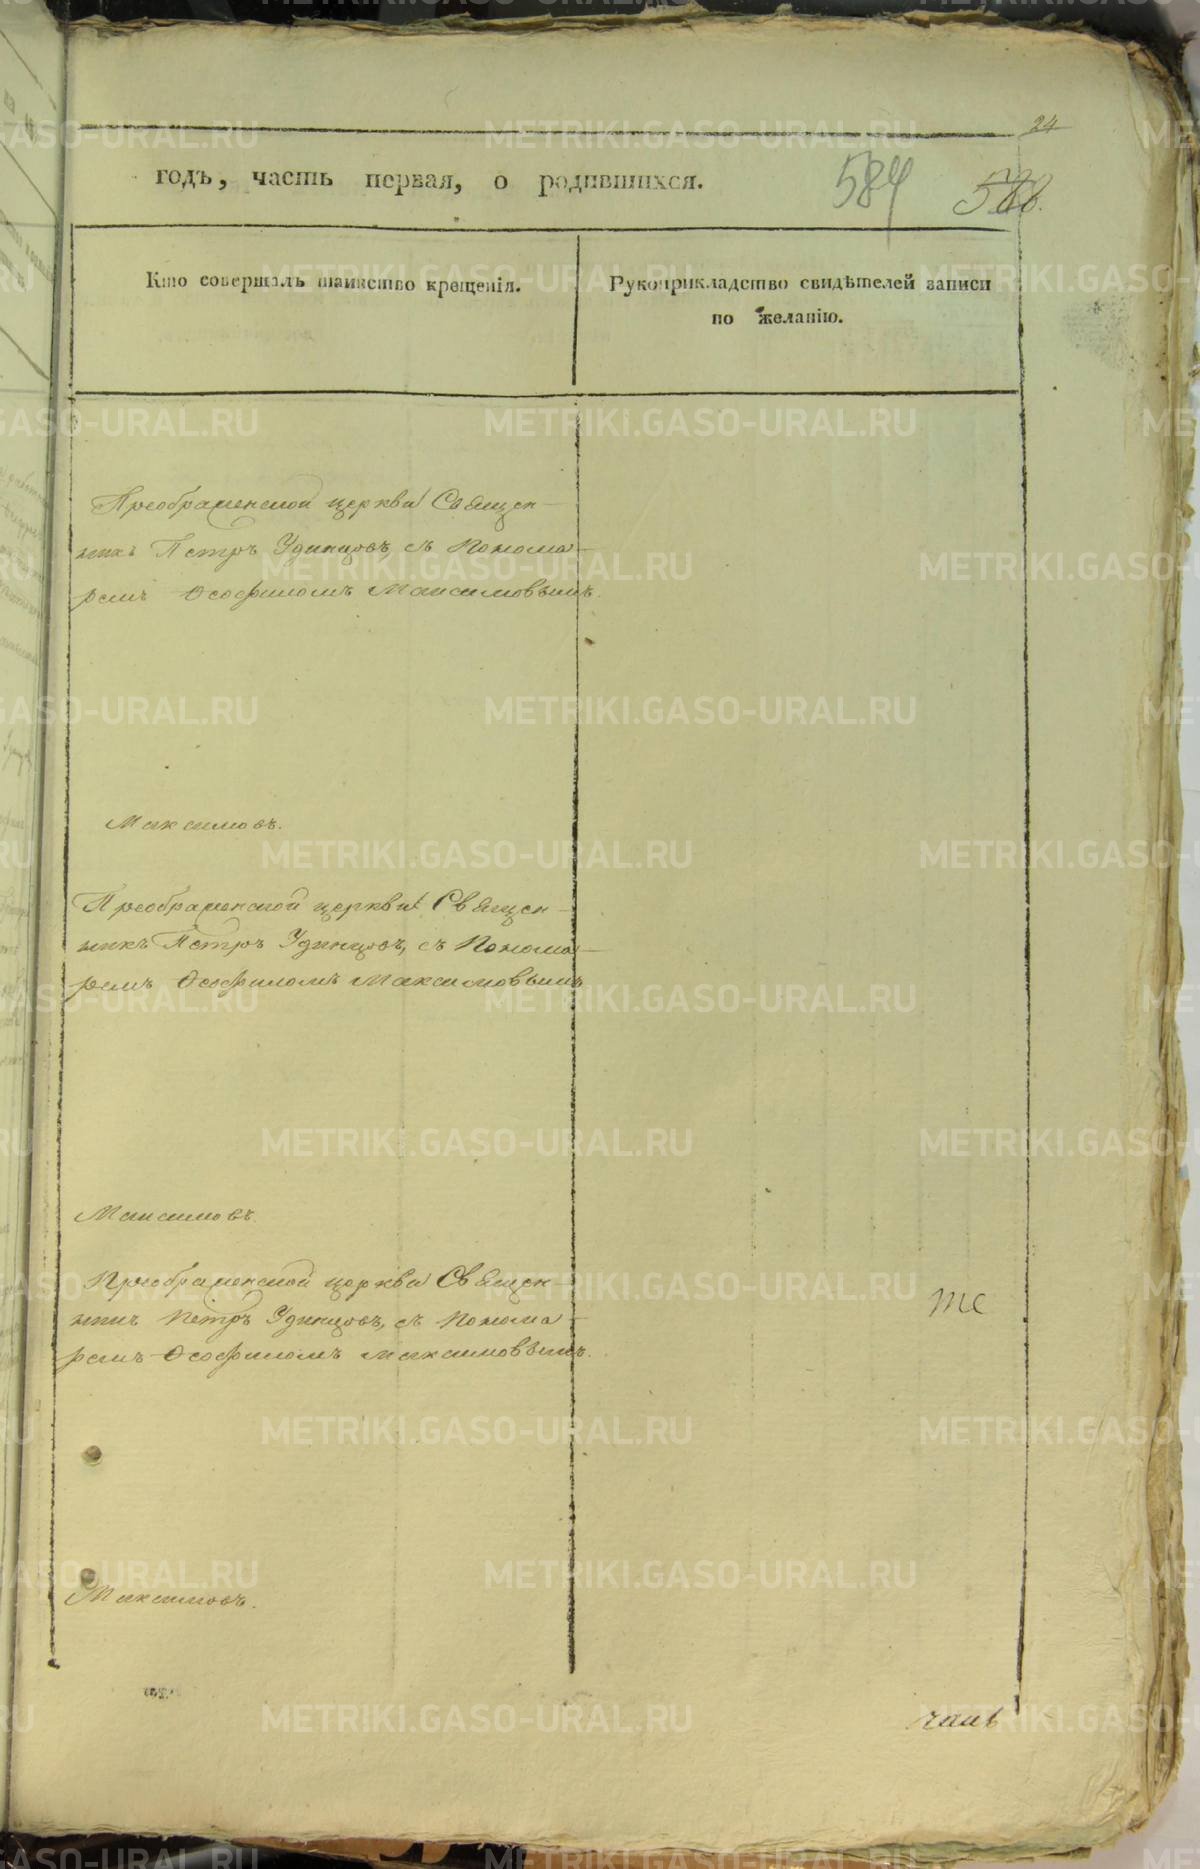 24
годъ, часть первая, о родившихся.
584 588.
Кто совершалъ таинство крещенія.
Рукоприкладство свидѣтелей записи
по желанію.
Преображенской церкви Священ-
никъ Петръ Удинцовъ, съ Понома-
ремъ Ѳеофиломъ Максимовымъ.
Максимовъ.
Преображенской церкви Священ-
никъ Петръ Удинцовъ, съ Понома-
ремъ Ѳеофиломъ Максимовымъ
Максимовъ.
Преображенской церкви Священ-
никъ Петръ Удинцовъ, съ Понома-
ремъ Ѳеофиломъ Максимовымъ.
Максимовъ.
METRIKI.GASO-URAL.RU